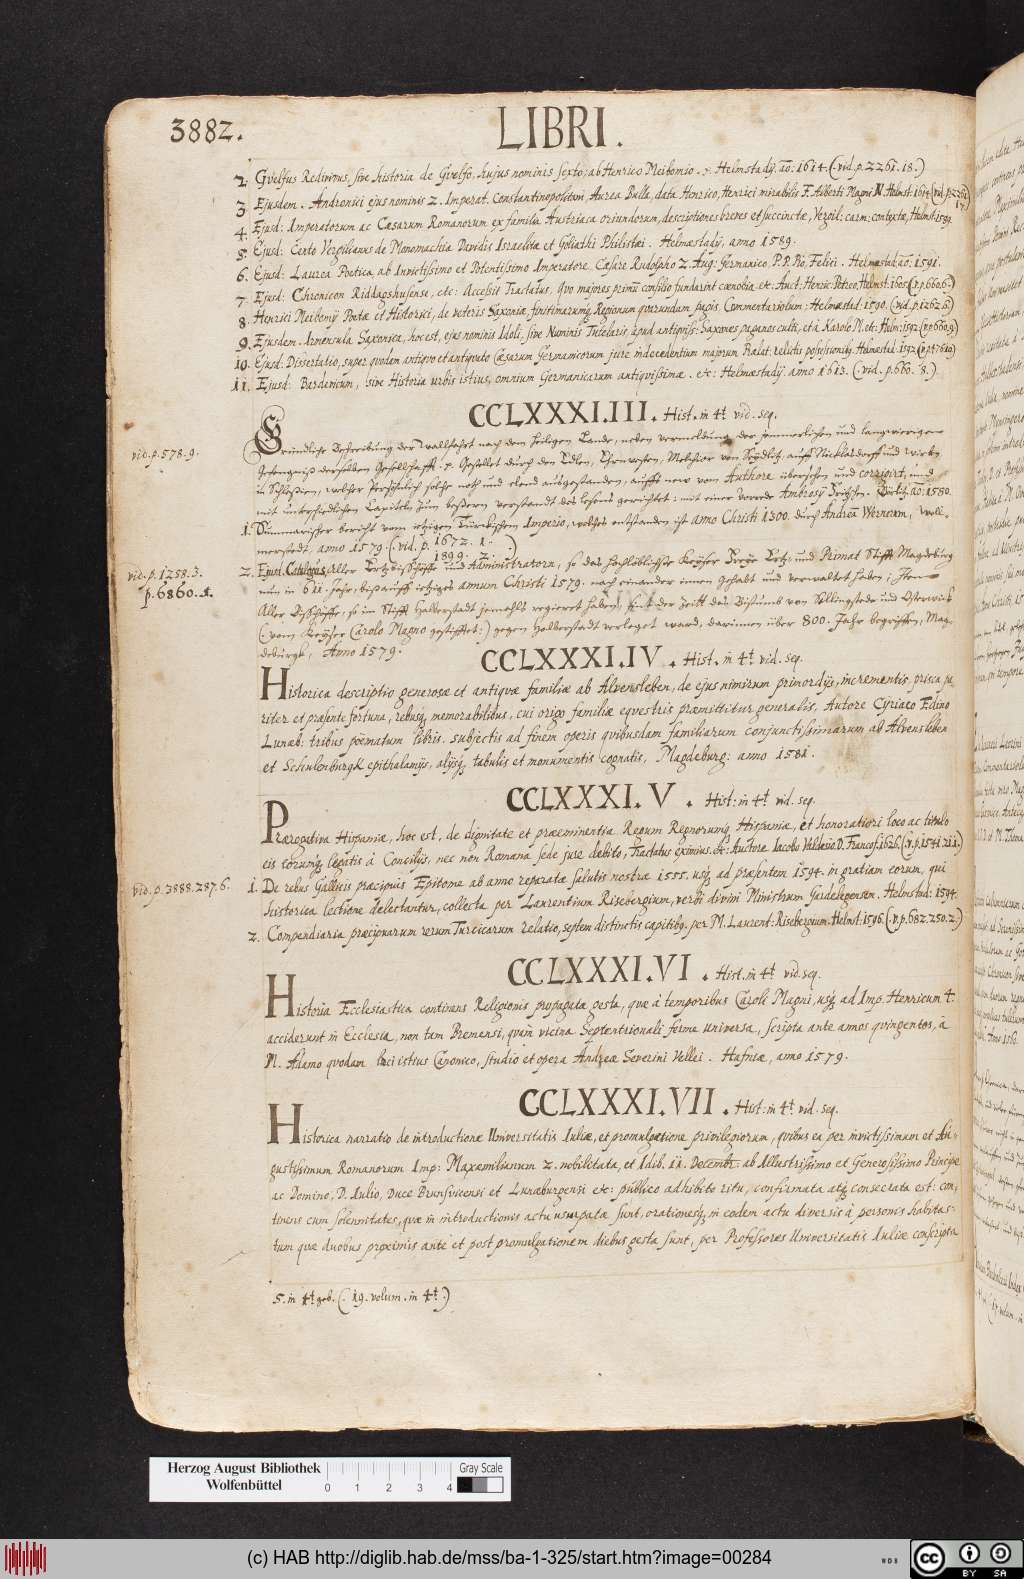 3882.
LIBRI.
2. Gvelfus Redivivus, sive historia de Gvelfo, hujus nominis sexto; ab Henrico Meibomio. Helmstadij. ao. 1614. (vid. p. 2261. 18.)
3. Ejusdem. Andronici ejus nominis 2. Imperat. Constantinopolitani Aurea Bulla, data Henrico, Henrici mirabilis F. Alberti Magni N. Helmst: 1614 (vid. p. 2261. 17.)
4. Ejusd: Imperatorum ac Cæsarum Romanorum ex familia Austriaca oriundorum, descriptiones breves et succinctæ, Vergil: carm: contextæ, Helmst: 1589.
5. Ejusd: Cento Vergilianus de Monomachia Davidis Israelitæ et Goliathi Philistæi. Helmæstadij, anno 1589.
6. Ejusd: Laurea Poetica, ab Invictissimo et Potentissimo Imperatore, Cæsare Rudolpho 2. Aug: Germanico, P. P. Pio, Felici. Helmæstad: ao: 1591.
7. Ejusd: Chronicon Riddagshusense, etc: Accessit Tractatus, quo majores primū consilio fundarint cœnobia, etc. Auct: Henric: Petreo, Helmst: 1605. (v. p. 6606.)
8. Henrici Meibomij Poetæ et Historici, de veteris Saxoniæ, finitimarumq Regionum quorundam pagis Commentariolum: Helmæstad: 1590. (vid. p. 1262. 6.)
9. Ejusdem. Irmensula Saxonica, hoc est, ejus nominis Idoli, sive Numinis Tutelaris, apud antiqviss: Saxones paganos culti, et à Karolo M. etc: Helm: 1592 (v. p. 660. 9)
10. Ejusd: Dissertatio, super quodam antiquo et antiquato Cæsarum Germanicorum jure in decedentium majorum Prælat: relictis possessionibq. Helmæstad. 1592.
11. Ejusd: Bardevicum, sive Historia urbis istius, omnium Germanicarum antiquissimæ. etc: Helmæstadij. anno 1613. (vid. p. 660. 8.)
CCLXXXI.III. Hist. in 4t. vid. seq.
vid. p. 578. 9.
Gründliche Beschreibung der Wallfahrt nach dem heiligen Lande, neben vermeldung der jemmerlichen und langwierigen
Gefengniß derselben Gesellschafft. Gestellet durch den Edlen, Ehrnvesten, Melchior von Seydlitz, auff Nicklasdorff und Wirben
in Schlesien, welcher Persöhnlich solche noth und elend ausgestanden, auffs new vom Authore übersehen und corrigirt, und
mit unterschiedlichen Capiteln, zum bessern verstandt des Lesens gerichtet: mit einer Vorrede Ambrosij Fritschen. Görlitz. ao: 1580.
1. Summarischer bericht vom itzigen Türckischen Imperio, welches entstanden ist anno Christi 1300. durch Andreā Wernerum, Woll-
merstedt, anno 1579. (vid. p. 1672. 1.
1899. 2.)
vid. p. 1258. 3.
p. 6860. 1.
2. Ejusd. Catalogus, Aller Ertzbisschoffe und Administratorn, so das Hochlöblichste Keyser Freye Ertz- und Primat Stifft Magdeburg
nun in 611. Jahr, bis auff itziges annum Christi 1579. nach einander innen gehabt und verwaltet haben, Item
Aller Bisschoffe, so im Stifft Halberstadt jemahls regieret haben, sint der zeitt das Bistumb von Sellingstede und Osterwick
(vom Keyser Carolo Magno gestifftet) gegen Halberstadt verleget ward, darinnen über 800. Jahr begriffen, Mag-
deburgk, Anno 1579.
CCLXXXI.IV. Hist. in 4t. vid. seq.
Historica descriptio generosæ et antiquæ familiæ ab Alvensleben, de ejus nimirum primordijs, incrementis, prisca pa-
riter et præsente fortuna, rebusq, memorabilibus, cui origo familiæ equestris præmittitur generalis, Autore Cyriaco Edino
Lunæb: tribus poëmatum libris. subjectis ad finem operis quibusdam familiarum conjunctissimarum ab Alvensleben
et Schulenburgk epithalamijs, alijsq, tabulis et monumentis cognatis, Magdeburg: anno 1581.
CCLXXXI.V. Hist: in 4t. vid. seq.
Prærogativa Hispaniæ, hoc est, de dignitate et præeminentia Regum Regnorumq, Hispaniæ, et honoratiori loco ac titulo
eis eorumq, legatis à Concilijs, nec non Romana sede jure debito, Tractatus eximius. etc: Auctore Iacobo Valdesio D. Francof: 1626. (v. p. 1541. 21.1.)
vid. p. 3888. 287. 6.
1. De rebus Gallicis præcipuis Epitome ab anno reparatæ salutis nostræ 1555. usq, ad præsentem 1594. in gratiam eorum, qui
historica lectione delectantur, collecta per Laurentium Risebergium, verbi divini Ministrum Gardelegensem. Helmstad: 1594.
2. Compendiaria præcipuarum rerum Turcicarum relatio, septem distinctis capitibq. per M. Laurent: Risebergium. Helmst: 1596. (v. p. 682. 250. 2.)
CCLXXXI.VI. Hist. in 4t. vid. seq.
Historia Ecclesiastica continens Religionis propagatæ gesta, quæ à temporibus Caroli Magni, usq, ad Imp. Henricum 4.
acciderunt in Ecclesia, non tam Bremensi, quàm vicina Septentrionali ferme universa, scripta ante annos quingentos, à
M. Adamo quodam loci istius Canonico, studio et opera Andreæ Severini Vellei. Hafniæ, anno 1579.
CCLXXXI.VII. Hist: in 4t. vid. seq.
Historica narratio de introductione Universitatis Iuliæ, et promulgatione privilegiorum, quibus ea per invictissimum et Au-
gustissimum Romanorum Imp: Maxæmilianum 2. nobilitata, et Idib. 11. Decembr. ab Illustrissimo et Generosissimo Principe
ac Domino, D. Iulio, Duce Brunsvicensi et Lunæburgensi etc: publico adhibito ritu, confirmata atq, consecrata est: con-
tinens cum solennitates, quæ in introductionis actu usurpatæ sunt, orationesq, in eodem actu diversis à personis habitas:
tum quæ duobus proximis ante et post promulgationem diebus gesta sunt, per Professores Universitatis Iuliæ conscripta
5. in 4t. geb. (19. volum. in 4t.)
Herzog August Bibliothek
Wolfenbüttel
0 1 2 3 4
Gray Scale
(c) HAB http://diglib.hab.de/mss/ba-1-325/start.htm?image=00284
WDB
cc BY SA